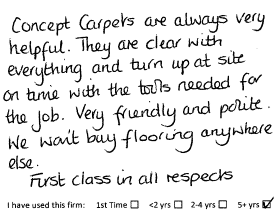 Concept Carpets are always very
helpful. They are clear with
everything and turn up at site
on time with the tools needed for
the job. Very friendly and polite.
We won't buy flooring anywhere
else.
First class in all respects
I have used this firm: 1st Time ☐ <2 yrs ☐ 2-4 yrs ☐ 5+ yrs ☑